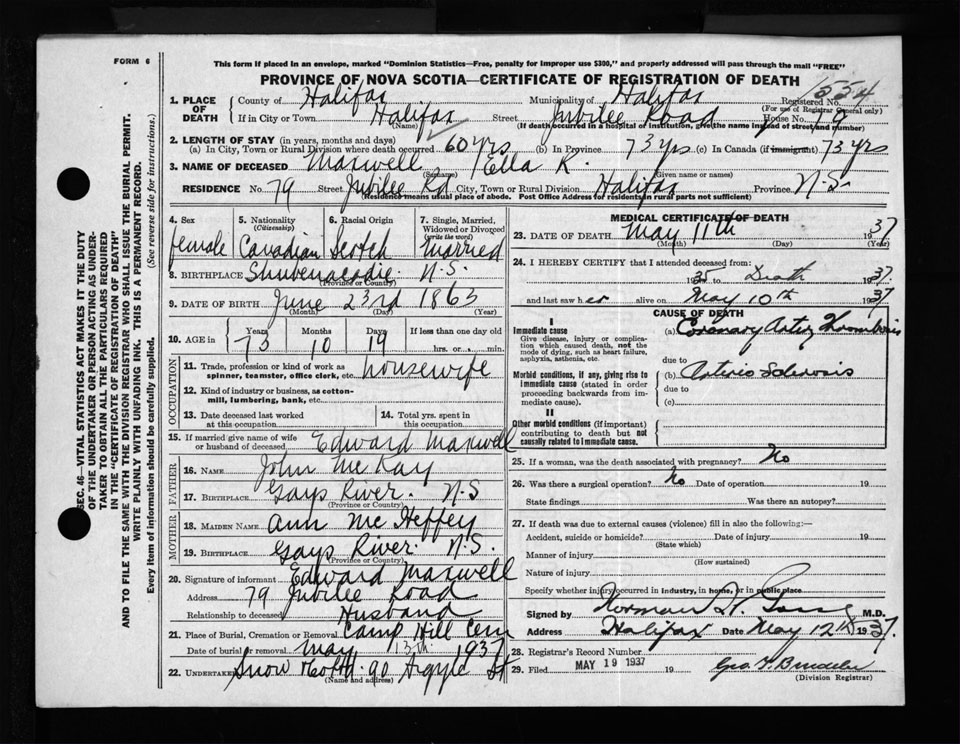 FORM 6
This form if placed in an envelope, marked "Dominion Statistics—Free, penalty for improper use $300," and properly addressed will pass through the mail "FREE"
PROVINCE OF NOVA SCOTIA—CERTIFICATE OF REGISTRATION OF DEATH
1. PLACE OF DEATH County of Halifax Municipality of Halifax Registered No. 1554
(For use of Registrar General only)
If in City or Town Halifax Street Jubilee Road House No. 79
(Name) (If death occurred in a hospital or institution, give the name instead of street and number)
2. LENGTH OF STAY (in years, months and days)
(a) In City, Town or Rural Division where death occurred 60 yrs (b) In Province 73 yrs (c) In Canada (if immigrant) 73 yrs
3. NAME OF DECEASED Maxwell Ella K.
(Surname) (Given name or names)
RESIDENCE No. 79 Street Jubilee Rd City, Town or Rural Division Halifax Province N.S.
(Residence means usual place of abode. Post Office Address for residents in rural parts not sufficient)
4. Sex female
5. Nationality (Citizenship) Canadian
6. Racial Origin Scotch
7. Single, Married, Widowed or Divorced (write the word) Married
8. BIRTHPLACE Shubenacadie N.S.
(Province or Country)
9. DATE OF BIRTH June 23rd 1863
(Month) (Day) (Year)
10. AGE in Years Months Days If less than one day old
73 10 19 hrs. or min.
OCCUPATION
11. Trade, profession or kind of work as spinner, teamster, office clerk, etc. housewife
12. Kind of industry or business, as cotton-mill, lumbering, bank, etc.
13. Date deceased last worked at this occupation
14. Total yrs. spent in this occupation
15. If married give name of wife or husband of deceased Edward Maxwell
FATHER
16. NAME John McKay
17. BIRTHPLACE Gays River. N.S
(Province or Country)
MOTHER
18. MAIDEN NAME Ann McHeffey
19. BIRTHPLACE Gays River. N.S.
(Province or Country)
20. Signature of informant Edward Maxwell
Address 79 Jubilee Road
Relationship to deceased Husband
21. Place of Burial, Cremation or Removal Camp Hill Cem
Date of burial or removal May 13th 1937
22. UNDERTAKER Snow 90 Argyle St
(Name and address)
MEDICAL CERTIFICATE OF DEATH
23. DATE OF DEATH May 11th 1937
(Month) (Day) (Year)
24. I HEREBY CERTIFY that I attended deceased from:
1935 to Death 1937.
and last saw her alive on May 10th 1937
CAUSE OF DEATH
I
Immediate cause
Give disease, injury or complication which caused death, not the mode of dying, such as heart failure, asphyxia, asthenia, etc.
(a) Coronary Artery Thrombosis
due to
Morbid conditions, if any, giving rise to immediate cause (stated in order proceeding backwards from immediate cause).
(b) Arterio Sclerosis
due to
(c)
II
Other morbid conditions (if important) contributing to death but not causally related to immediate cause.
25. If a woman, was the death associated with pregnancy? No
26. Was there a surgical operation? No Date of operation 19
State findings Was there an autopsy?
27. If death was due to external causes (violence) fill in also the following:—
Accident, suicide or homicide? Date of injury 19
(State which)
Manner of injury
(How sustained)
Nature of injury
Specify whether injury occurred in Industry, in home, or in public place
Signed by Norman H. M.D.
Address Halifax Date May 12th 1937.
28. Registrar's Record Number
29. Filed MAY 19 1937 19 Geo. H.
(Division Registrar)
SEC. 46—VITAL STATISTICS ACT MAKES IT THE DUTY
OF THE UNDERTAKER OR PERSON ACTING AS UNDERTAKER TO OBTAIN ALL THE PARTICULARS REQUIRED
IN THE "CERTIFICATE OF REGISTRATION OF DEATH"
AND TO FILE THE SAME WITH THE DIVISION REGISTRAR WHO SHALL ISSUE THE BURIAL PERMIT.
WRITE PLAINLY WITH UNFADING INK. THIS IS A PERMANENT RECORD.
Every item of information should be carefully supplied. (See reverse side for instructions.)